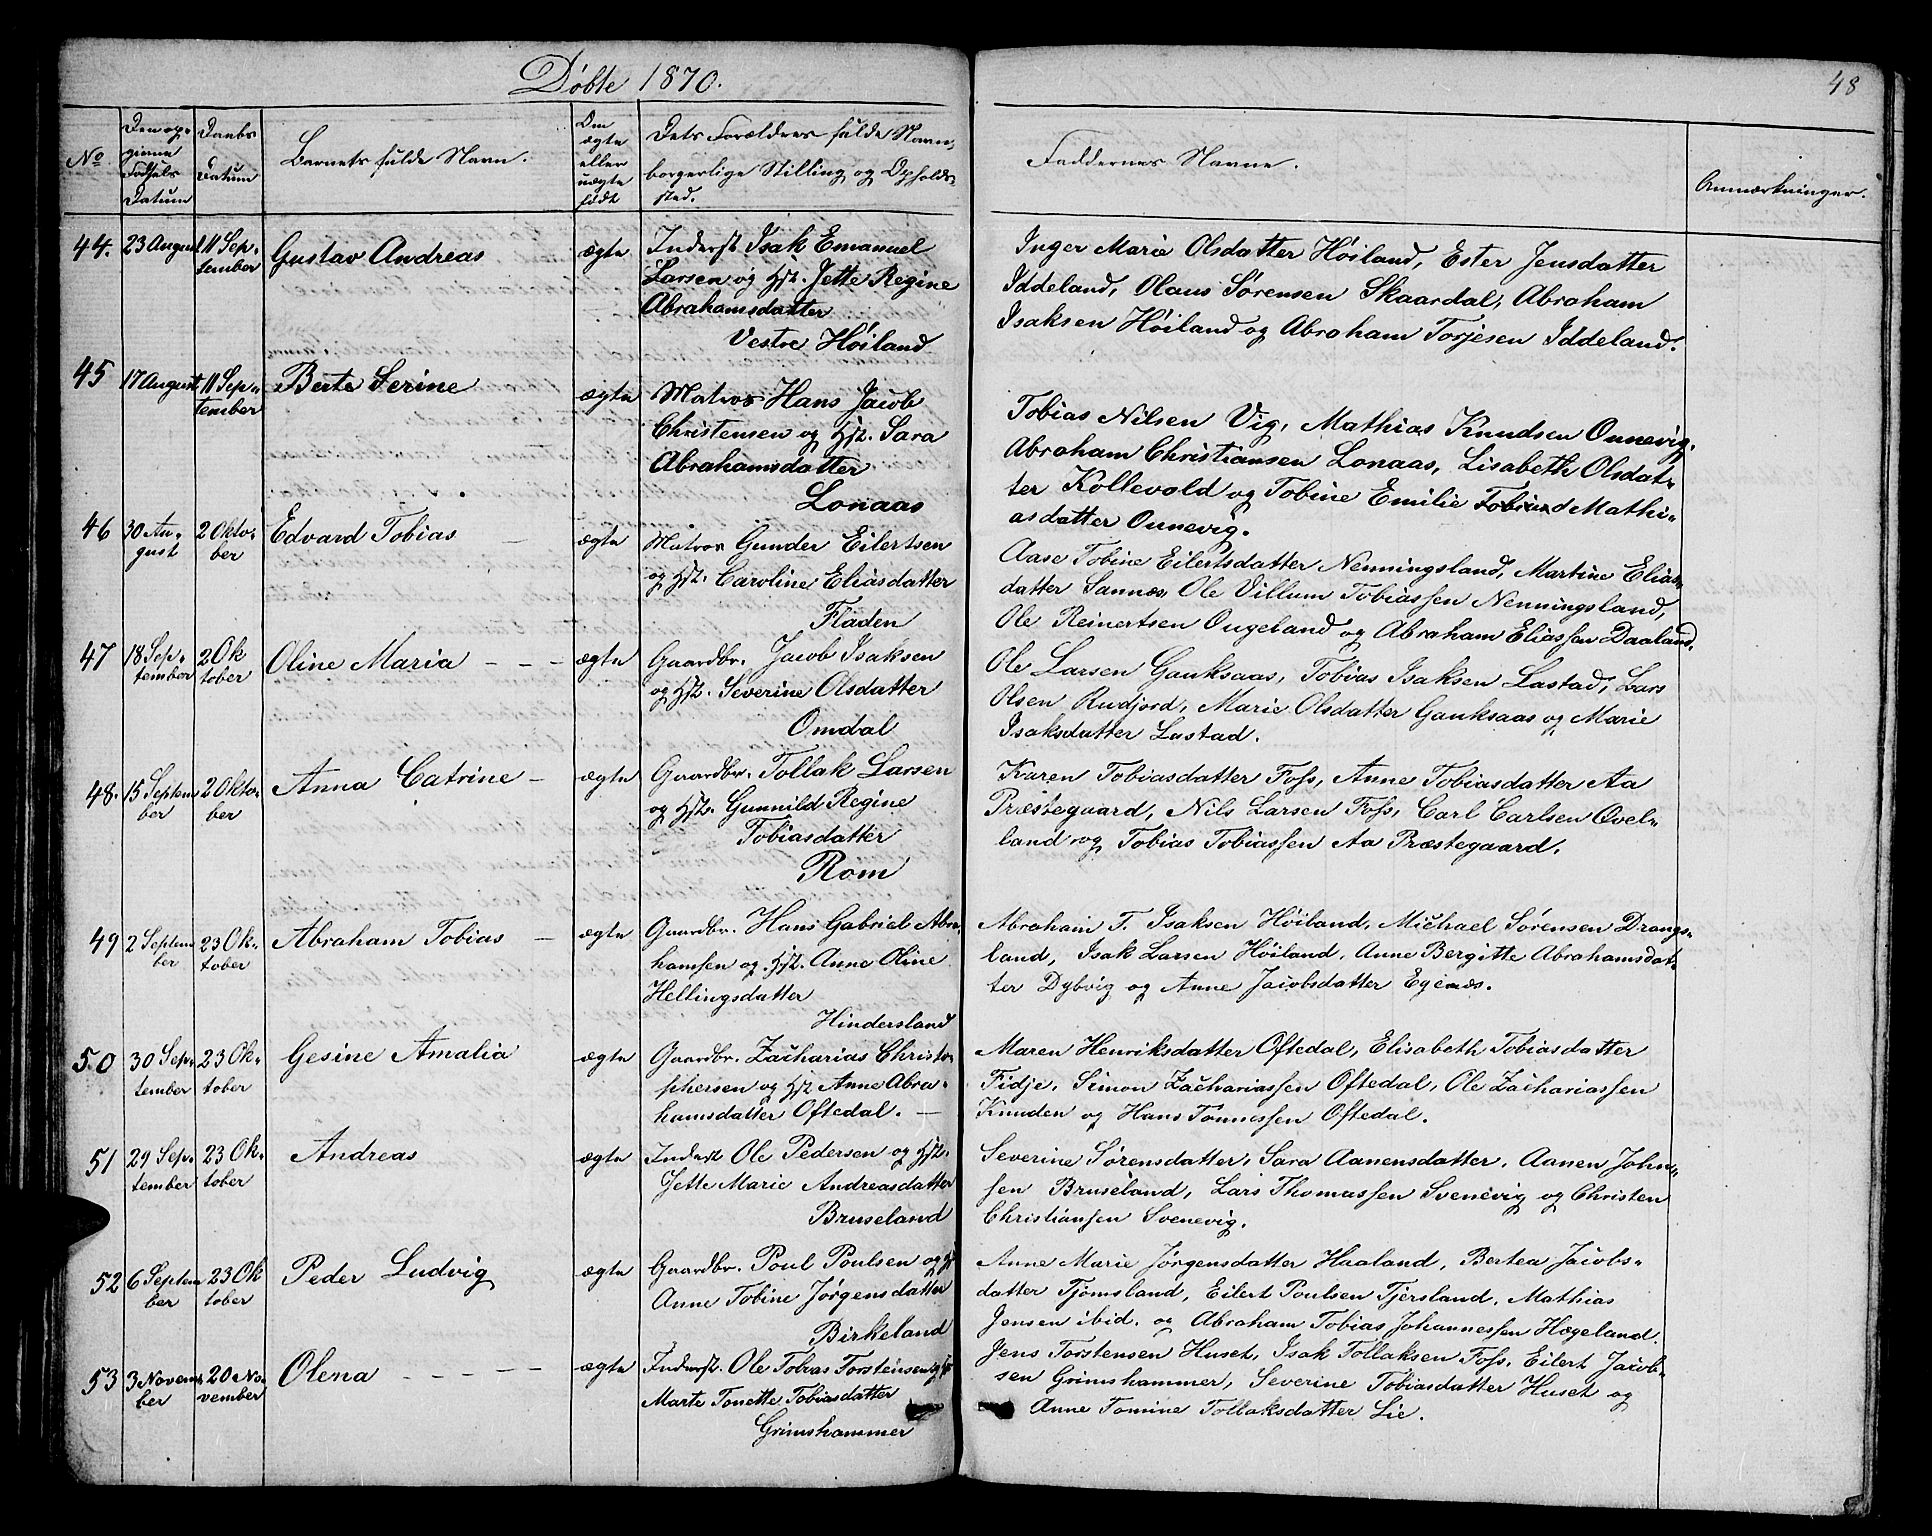 Döbte 1870.
48
No
Den op-
givne
Fødsels
Datum
Daabs
Datum
Barnets fulde Navn.
Om
ægte
eller
uægte
født
Dets Forældres fulde Navn,
borgerlige Stilling og Opholds-
sted.
Faddernes Navne.
Anmærkninger.
44. 23 August 11 Sep-
tember
Gustav Andreas
ægte
Inderst Isak Emanuel
Larsen og Hst. Jette Regine
Abrahamsdatter
Vestre Høiland
Inger Marie Olsdatter Høiland, Ester Jensdatter
Iddeland, Olaus Sørensen Skaardal, Abraham
Isaksen Høiland og Abraham Torjesen Iddeland.
45 17 August 11 Sep-
tember
Berte Serine
ægte
Matros Hans Jacob
Christensen og Hst. Sara
Abrahamsdatter
Lonaas
Tobias Nilsen Vig, Mathias Knudsen Onnevig,
Abraham Christiansen Lonaas, Lisabeth Olsdat-
ter Kollevold og Tobine Emilie Mathi-
asdatter Onnevig.
46 30 Au-
gust
2 Okto-
ber
Edvard Tobias
ægte
Matros Gunder Eilertsen
og Hst. Caroline Eliasdatter
Fladen
Aase Tobine Eilertsdatter Nenningsland, Martine Elias-
datter Sannæs, Ole Villum Tobiassen Nenningsland,
Ole Reinertsen Ougeland og Abraham Eliassen Daaland.
47 18 Sep-
tember
2 Ok
tober
Oline Maria
ægte
Gaardbr. Jacob Isaksen
og Hst. Severine Olsdatter
Omdal
Ole Larsen Gauksaas, Tobias Isaksen Lastad, Lars
Olsen Rudjord, Marie Olsdatter Gauksaas og Marie
Isaksdatter Lastad.
48. 15 Septem
ber
2 Okto-
ber
Anna Catrine
ægte
Gaardbr. Tollak Larsen
og Hst. Gunnild Regine
Tobiasdatter
Rom
Karen Tobiasdatter Foss, Anne Tobiasdatter Aa
Præstegaard, Nils Larsen Foss, Carl Carlsen Øvel-
land og Tobias Tobiassen Aa Præstegaard.
49 2 Septem
ber
23 Ok-
tober
Abraham Tobias
ægte
Gaardbr. Hans Gabriel Abra-
hamsen og Hst. Anne Oline
Hellingsdatter
Hindersland
Abraham T. Isaksen Høiland, Michael Sørensen Drangs-
land, Isak Larsen Høiland, Anne Bergitte Abrahamsdat-
ter Dybvig og Anne Jacobsdatter Egenæs.
50 30 Sep-
tember
23 Ok-
tober
Gesine Amalia
ægte
Gaardbr. Zacharias Christo-
phersen og Hst Anne Abra-
hamsdatter Oftedal.
Maren Henriksdatter Oftedal, Elisabeth Tobiasdatter
Fidje, Simon Zachariassen Oftedal, Ole Zachariassen
Knuden og Hans Tønnessen Oftedal.
51 29 Sep-
tember
23 Ok-
tober
Andreas
ægte
Inderst Ole Pedersen og Hst.
Jette Marie Andreasdatter
Bruseland
Severine Sørensdatter, Sara Aanensdatter, Aanen John-
sen Bruseland, Lars Thomassen Svenevig og Christen
Christiansen Svenevig.
52 6 Septem
ber
23 Ok
tober
Peder Ludvig
ægte
Gaardbr. Poul Poulsen og Hst
Anne Tobine Jørgensdatter
Birkeland
Anne Marie Jørgensdatter Haaland, Bertea Jacobs-
datter Tjomsland, Eilert Poulsen Tjersland, Mathias
Jensen ibid. og Abraham Tobias Johannessen Hægeland.
53 3 Novem
ber
20 No
vember
Olena
ægte
Inderst. Ole Tobias Torstensen og Hst
Marte Tonette Tobiasdatter
Grimshammer
Jens Torstensen Huset, Isak Tollaksen Foss, Eilert Jacob-
sen Grimshammer, Severine Tobiasdatter Huset og
Anne Tomine Tollaksdatter Lie.